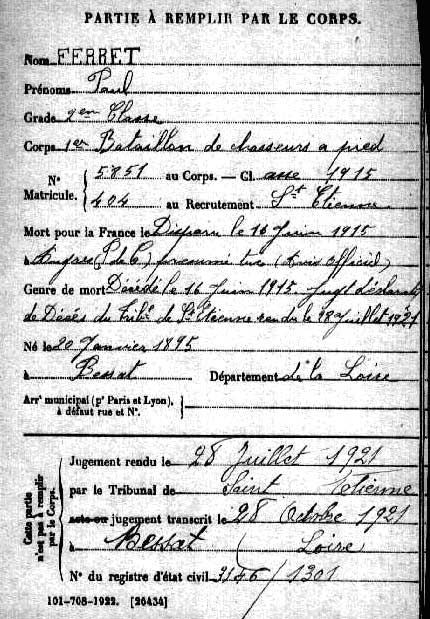 PARTIE À REMPLIR PAR LE CORPS.
Nom FERRET
Prénoms Paul
Grade 2en Classe
Corps 1er Bataillon de chasseurs a pied
N° Matricule. { 5851 au Corps. — Cl asse 1915
404 au Recrutement St Etienne
Mort pour la France le Disparu le 16 Juin 1915
à Angres (P de C) presumé tué (Avis Officiel)
Genre de mort Décédé le 16 Juin 1915 - Jugt déclaratif
de Décès du tribl de St Etienne rendu le 28 Juillet 1921
Né le 20 Janvier 1895
à Bessat Département de la Loire
Arrt municipal (pr Paris et Lyon),
à défaut rue et N°.
Cette partie
n'est pas à remplir
par le Corps.
Jugement rendu le 28 Juillet 1921
par le Tribunal de Saint Etienne
acte ou jugement transcrit le 28 Octobre 1921
à Bessat ( Loire
N° du registre d'état civil 3146/1301
101-708-1922. [26434]